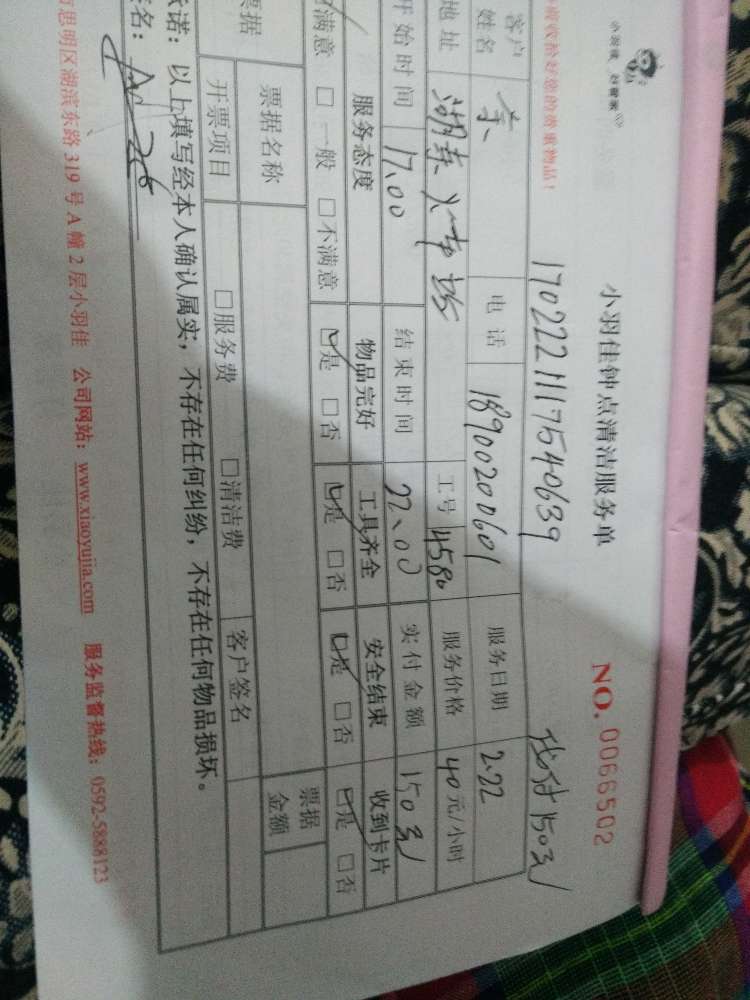 小羽佳 好管家
小羽佳钟点清洁服务单
NO. 0066502
收拾好您的贵重物品!
170222111754063 9
代付150元
客户姓名 电话 18900200601 服务日期 2.22
地址 湖东 工号 4580 服务价格 40元/小时
开始时间 17.00 结束时间 22.00 实付金额 150元
服务态度 物品完好 工具齐全 安全结束 收到卡片
满意 □一般 □不满意 ☑是 □否 ☑是 □否 ☑是 □否 ☑是 □否
票据 票据名称 票据金额
开票项目 □服务费 □清洁费 客户签名
诺:以上填写经本人确认属实,不存在任何纠纷,不存在任何物品损坏。
名:
思明区湖滨东路 319 号 A 幢 2 层小羽佳 公司网站:www.xiaoyujia.com 服务监督热线:0592-5888123